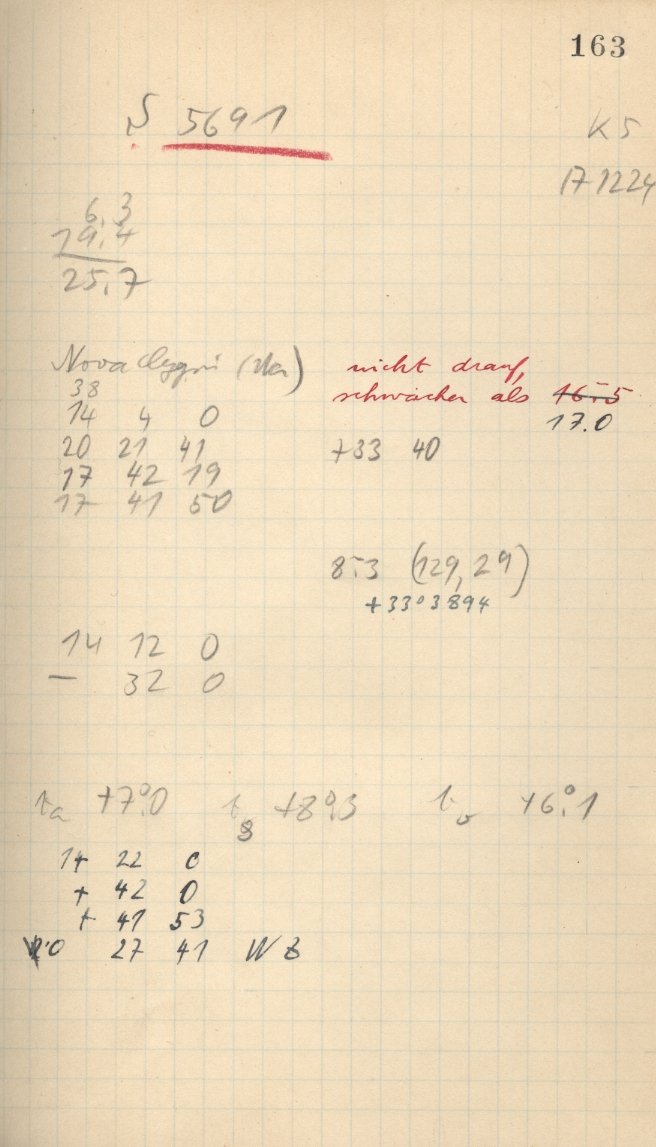 163
S 5691
K 5
17 1224
6.3
19.4
25.7
Nova Cygni nicht drauf,
38 schwächer als 16.5
14 4 0 17.0
20 21 41 +33 40
17 42 19
17 41 50
8.3 (129, 29)
+33°3894
14 12 0
— 32 0
+7°.0 +8°.3 +6°.1
14 22 0
+ 42 0
+ 41 53
20 27 41 WB